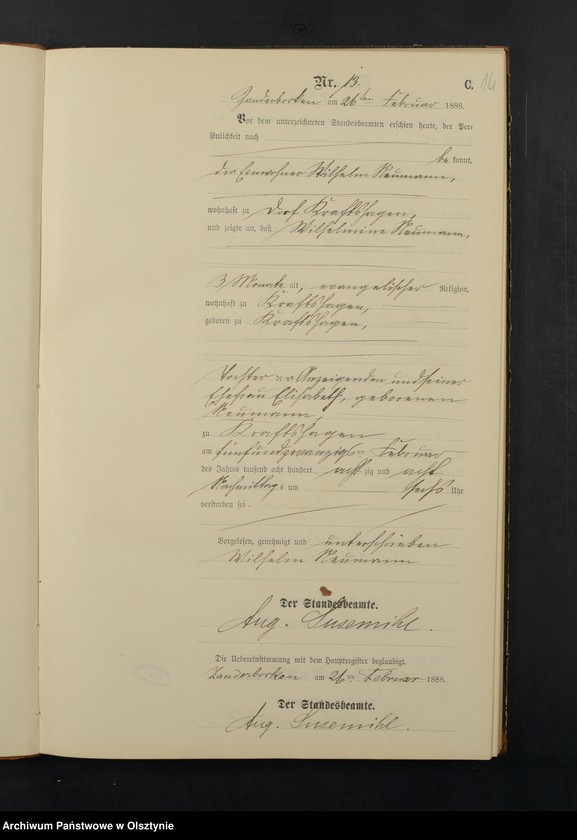 Nr. 13.
C. 14
Zanderborken am 26ten Februar 1888.
Vor dem unterzeichneten Standesbeamten erschien heute, der Per-
sönlichkeit nach
be kannt,
der Einwohner Wilhelm Neumann,
wohnhaft zu Dorf Kraftshagen,
und zeigte an, daß Wilhelmine Neumann,
3 Monate alt, evangelischer Religion,
wohnhaft zu Kraftshagen,
geboren zu Kraftshagen,
Tochter des Anzeigenden und seiner
Ehefrau Elisabeth, geborenen
Neumann,
zu Kraftshagen
am fünfundzwanzigsten Februar
des Jahres tausend acht hundert acht zig und acht
Nachmittags um sechs Uhr
verstorben sei.
Vorgelesen, genehmigt und unterschrieben
Wilhelm Neumann
Der Standesbeamte.
Aug. Susemihl.
Die Uebereinstimmung mit dem Hauptregister beglaubigt.
Zanderborken am 26ten Februar 1888.
Der Standesbeamte.
Aug. Susemihl.
Archiwum Państwowe w Olsztynie